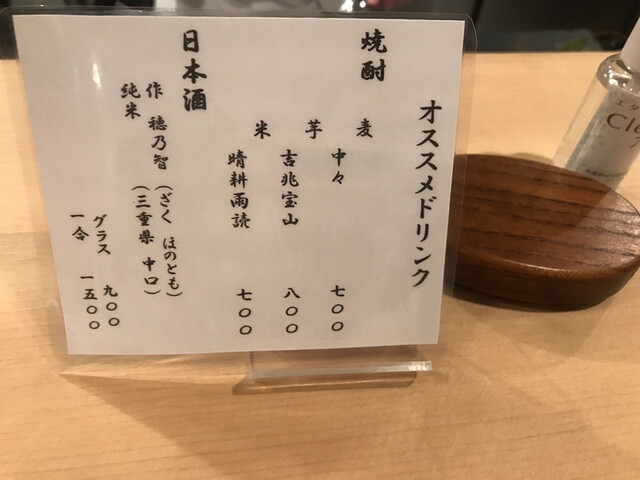 オススメドリンク
焼酎
麦 中々 七〇〇
芋 吉兆宝山 八〇〇
米 晴耕雨読 七〇〇
日本酒
作 穂乃智 (ざく ほのとも)
純米 (三重県 中口)
グラス 九〇〇
一合 一五〇〇